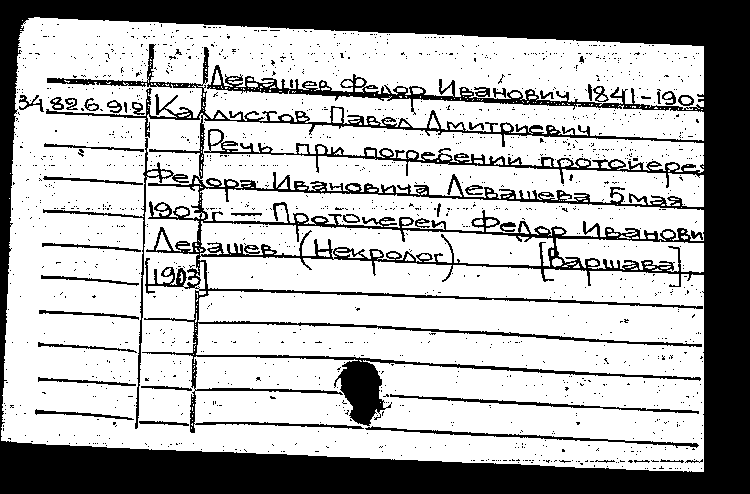 Левашев Федор Иванович, 1841-1903
34.82.6.912 Каллистов, Павел Дмитриевич
Речь при погребении протоиерея
Федора Ивановича Левашева 5 мая
1903г — Протоиерей Федор Иванови
Левашев. (Некролог). [Варшава],
[1903]